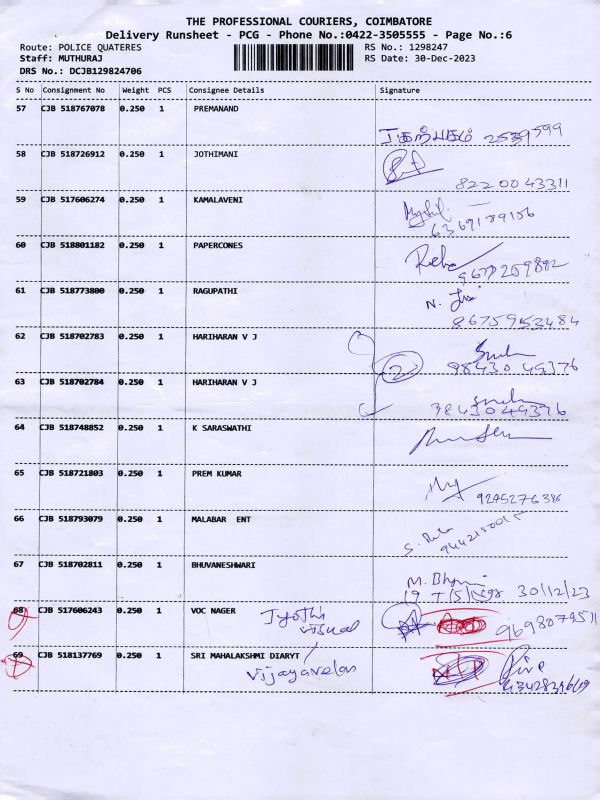 THE PROFESSIONAL COURIERS, COIMBATORE
Delivery Runsheet - PCG - Phone No.:0422-3505555 - Page No.:6
Route: POLICE QUATERES RS No.: 1298247
Staff: MUTHURAJ RS Date: 30-Dec-2023
DRS No.: DCJB129824706
S No Consignment No Weight PCS Consignee Details Signature
57 CJB 518767078 0.250 1 PREMANAND
58 CJB 518726912 0.250 1 JOTHIMANI
8220043311
59 CJB 517606274 0.250 1 KAMALAVENI
6369189156
60 CJB 518801182 0.250 1 PAPERCONES
61 CJB 518773800 0.250 1 RAGUPATHI
8675953484
62 CJB 518702783 0.250 1 HARIHARAN V J
2
9843049376
63 CJB 518702784 0.250 1 HARIHARAN V J
9843049376
64 CJB 518748852 0.250 1 K SARASWATHI
65 CJB 518721803 0.250 1 PREM KUMAR
66 CJB 518793079 0.250 1 MALABAR ENT
67 CJB 518702811 0.250 1 BHUVANESHWARI
30/12/23
68 CJB 517606243 0.250 1 VOC NAGER Jyothi
69 CJB 518137769 0.250 1 SRI MAHALAKSHMI DIARYT
Vijayavelan